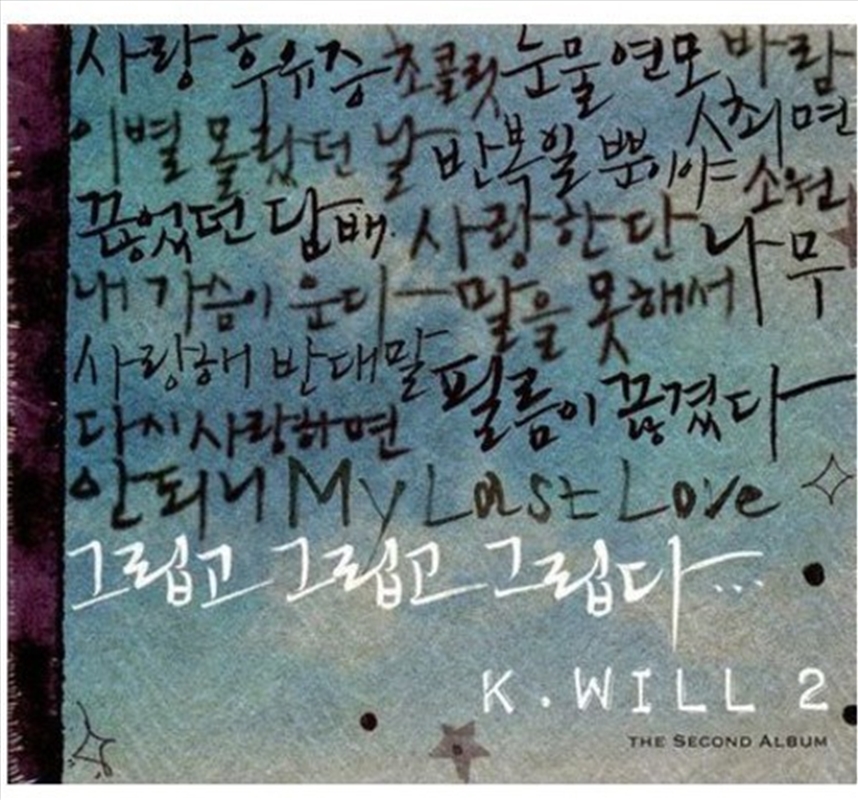 사랑 후유증 초콜릿 눈물 연모 바람
이별 몰랐던 날 반복일 뿐이야 최면
끊었던 담배. 사랑한단 소원
내 가슴이 운다 말을 못해서 나무
사랑해 반대말 필름이 끊겼다
다시 사랑하면
안되니 My Last Love
그립고 그립고 그립다...
K.WILL 2
THE SECOND ALBUM